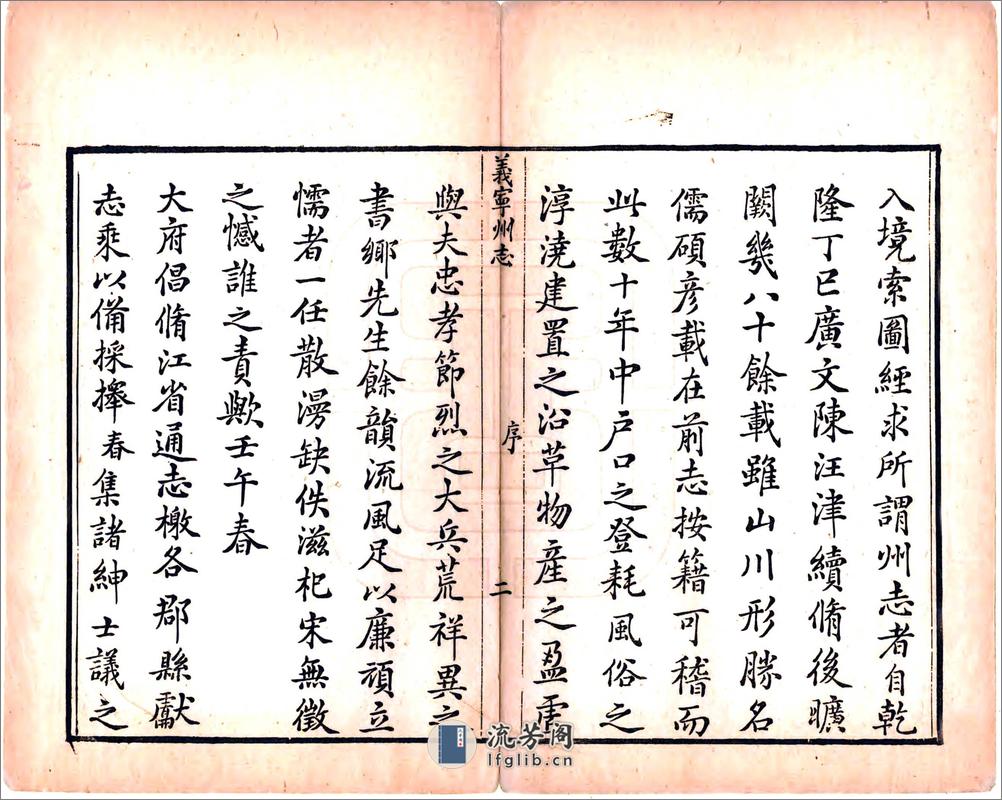 入境索圖經求所謂州志者自乾
隆丁巳廣文陳汪津續脩後曠
闕幾八十餘載雖山川形勝名
儒碩彦載在前志按籍可稽而
此數十年中户口之登耗風俗之
淳澆建置之沿革物産之盈虗
義寧州志
序
二
與夫忠孝節烈之大兵荒祥異之
書鄉先生餘韻流風足以廉頑立
懦者一任散漫缺佚滋杞宋無徵
之憾誰之責歟壬午春
大府倡脩江省通志檄各郡縣獻
志乘以備採擇春集諸紳士議之
流芳阁
lfglib.cn